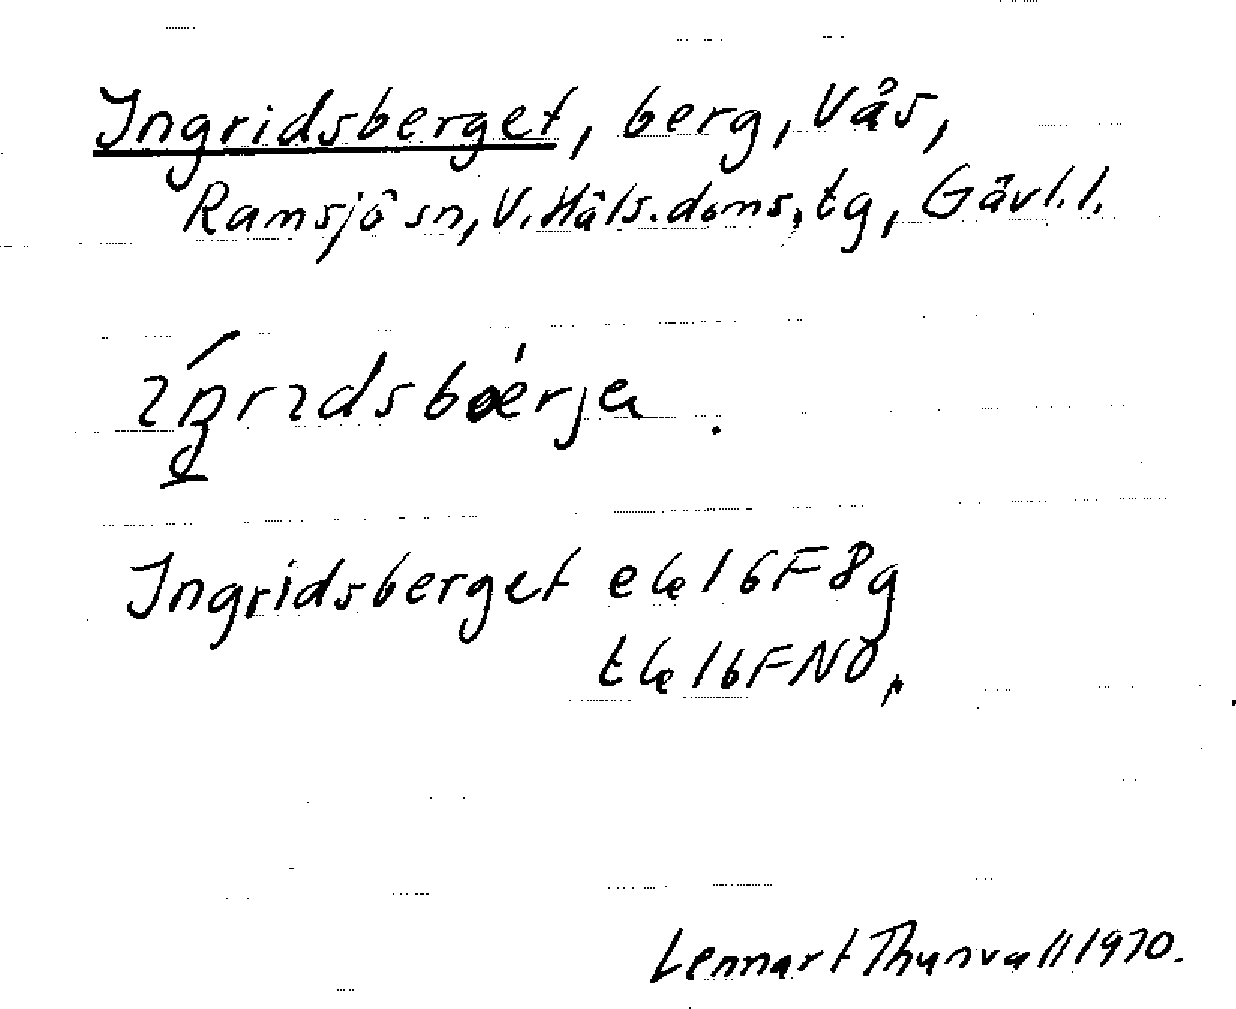 Ingridsberget, berg, Vås,
Ramsjö sn, V. Häls. doms. tg, Gävl. l.
Ingridsberget ek 16F8g
tk 16FNO,
Lennart Thunvall 1970.